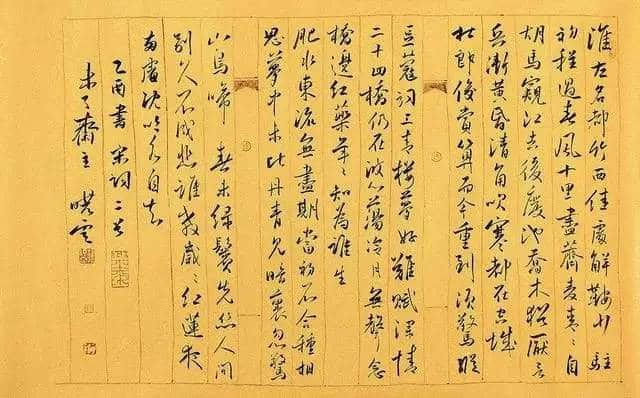 淮左名都竹西佳處解鞍少駐
初程過春風十里盡薺麥青々自
胡馬窺江去後廢池喬木猶厭言
兵漸黃昏清角吹寒都在空城
杜郎俊賞算而今重到須驚縱
豆蔻詞工青樓夢好難賦深情
二十四橋仍在波心蕩冷月無聲念
橋邊紅藥年々知為誰生
肥水東流無盡期當初不合種相
思夢中未比丹青見暗裏忽驚
山鳥啼 春未綠鬢先絲人間
別久不成悲誰教歲々紅蓮夜
兩處沈吟各自知
乙酉書宋詞二首
齋主